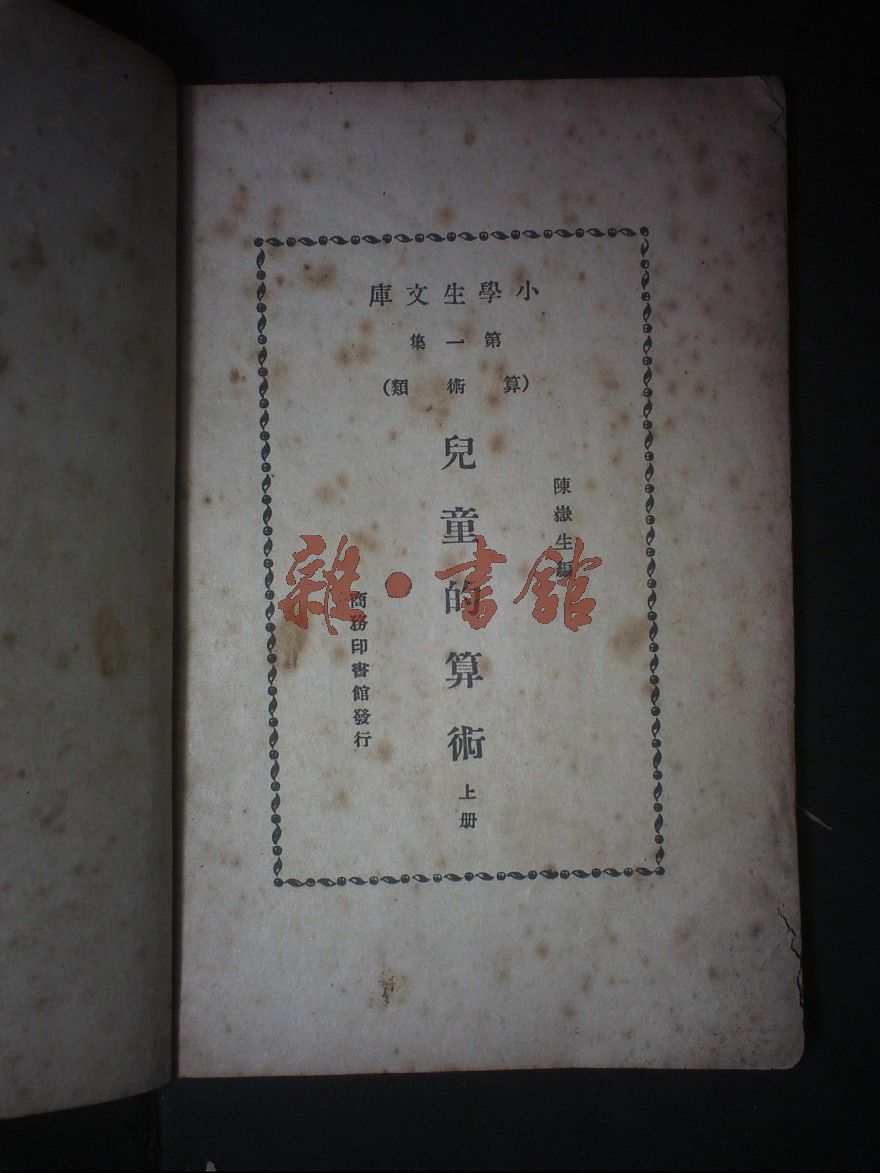 小學生文庫
第一集
(算術類)
陳嶽生編
兒童的算術 上册
商務印書館發行
雜·書館